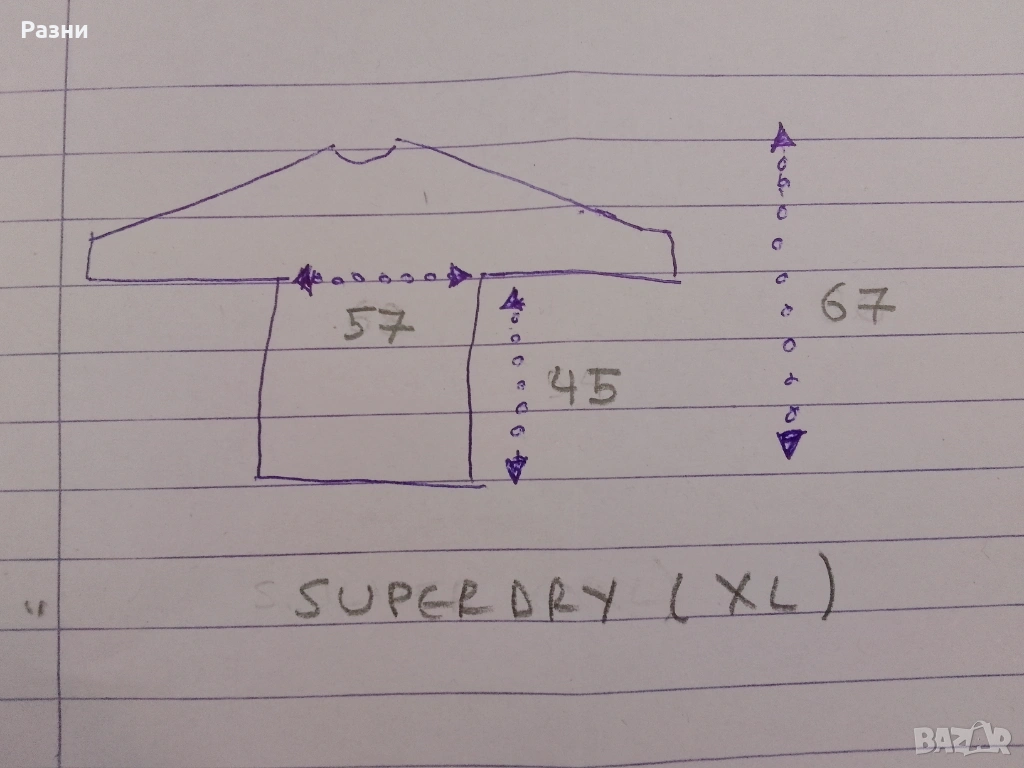 Разни
57
67
45
SUPERDRY (XL)
"
BAZAR